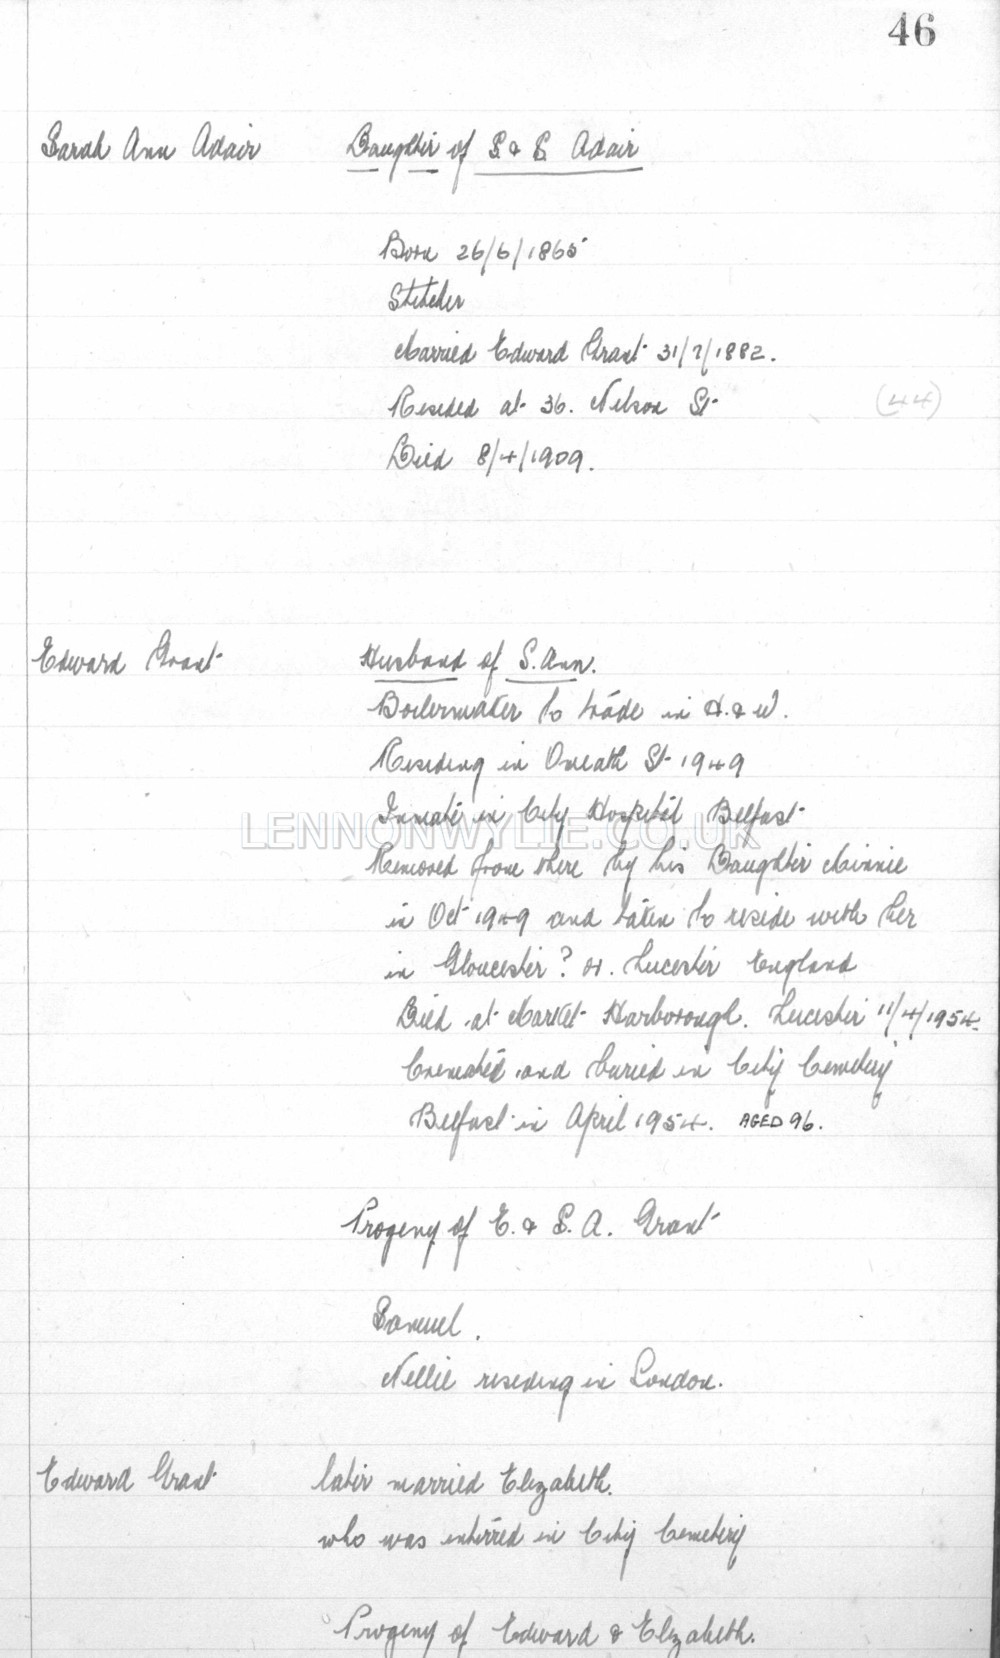 46
Sarah Ann Adair Daughter of S & S Adair
Born 26/6/1865
Stitcher
Married Edward Grant 31/7/1882.
Resided at 36. Nelson St (44)
Died 8/4/1909.
Edward Grant Husband of S. Ann.
Boilermaker to trade in H. & W.
Residing in Omeath St 1949
Inmate in City Hospital Belfast
LENNONWYLIE.CO.UK
Removed from there by his Daughter Minnie
in Oct 1949 and taken to reside with her
in Gloucester? or. Leicester England
Died at Market Harborough. Leicester 11/4/1954.
Cremated and buried in City Cemetery
Belfast in April 1954. AGED 96.
Progeny of E. & S. A. Grant
Samuel.
Nellie residing in London.
Edward Grant later married Elizabeth.
who was interred in City Cemetery
Progeny of Edward & Elizabeth.